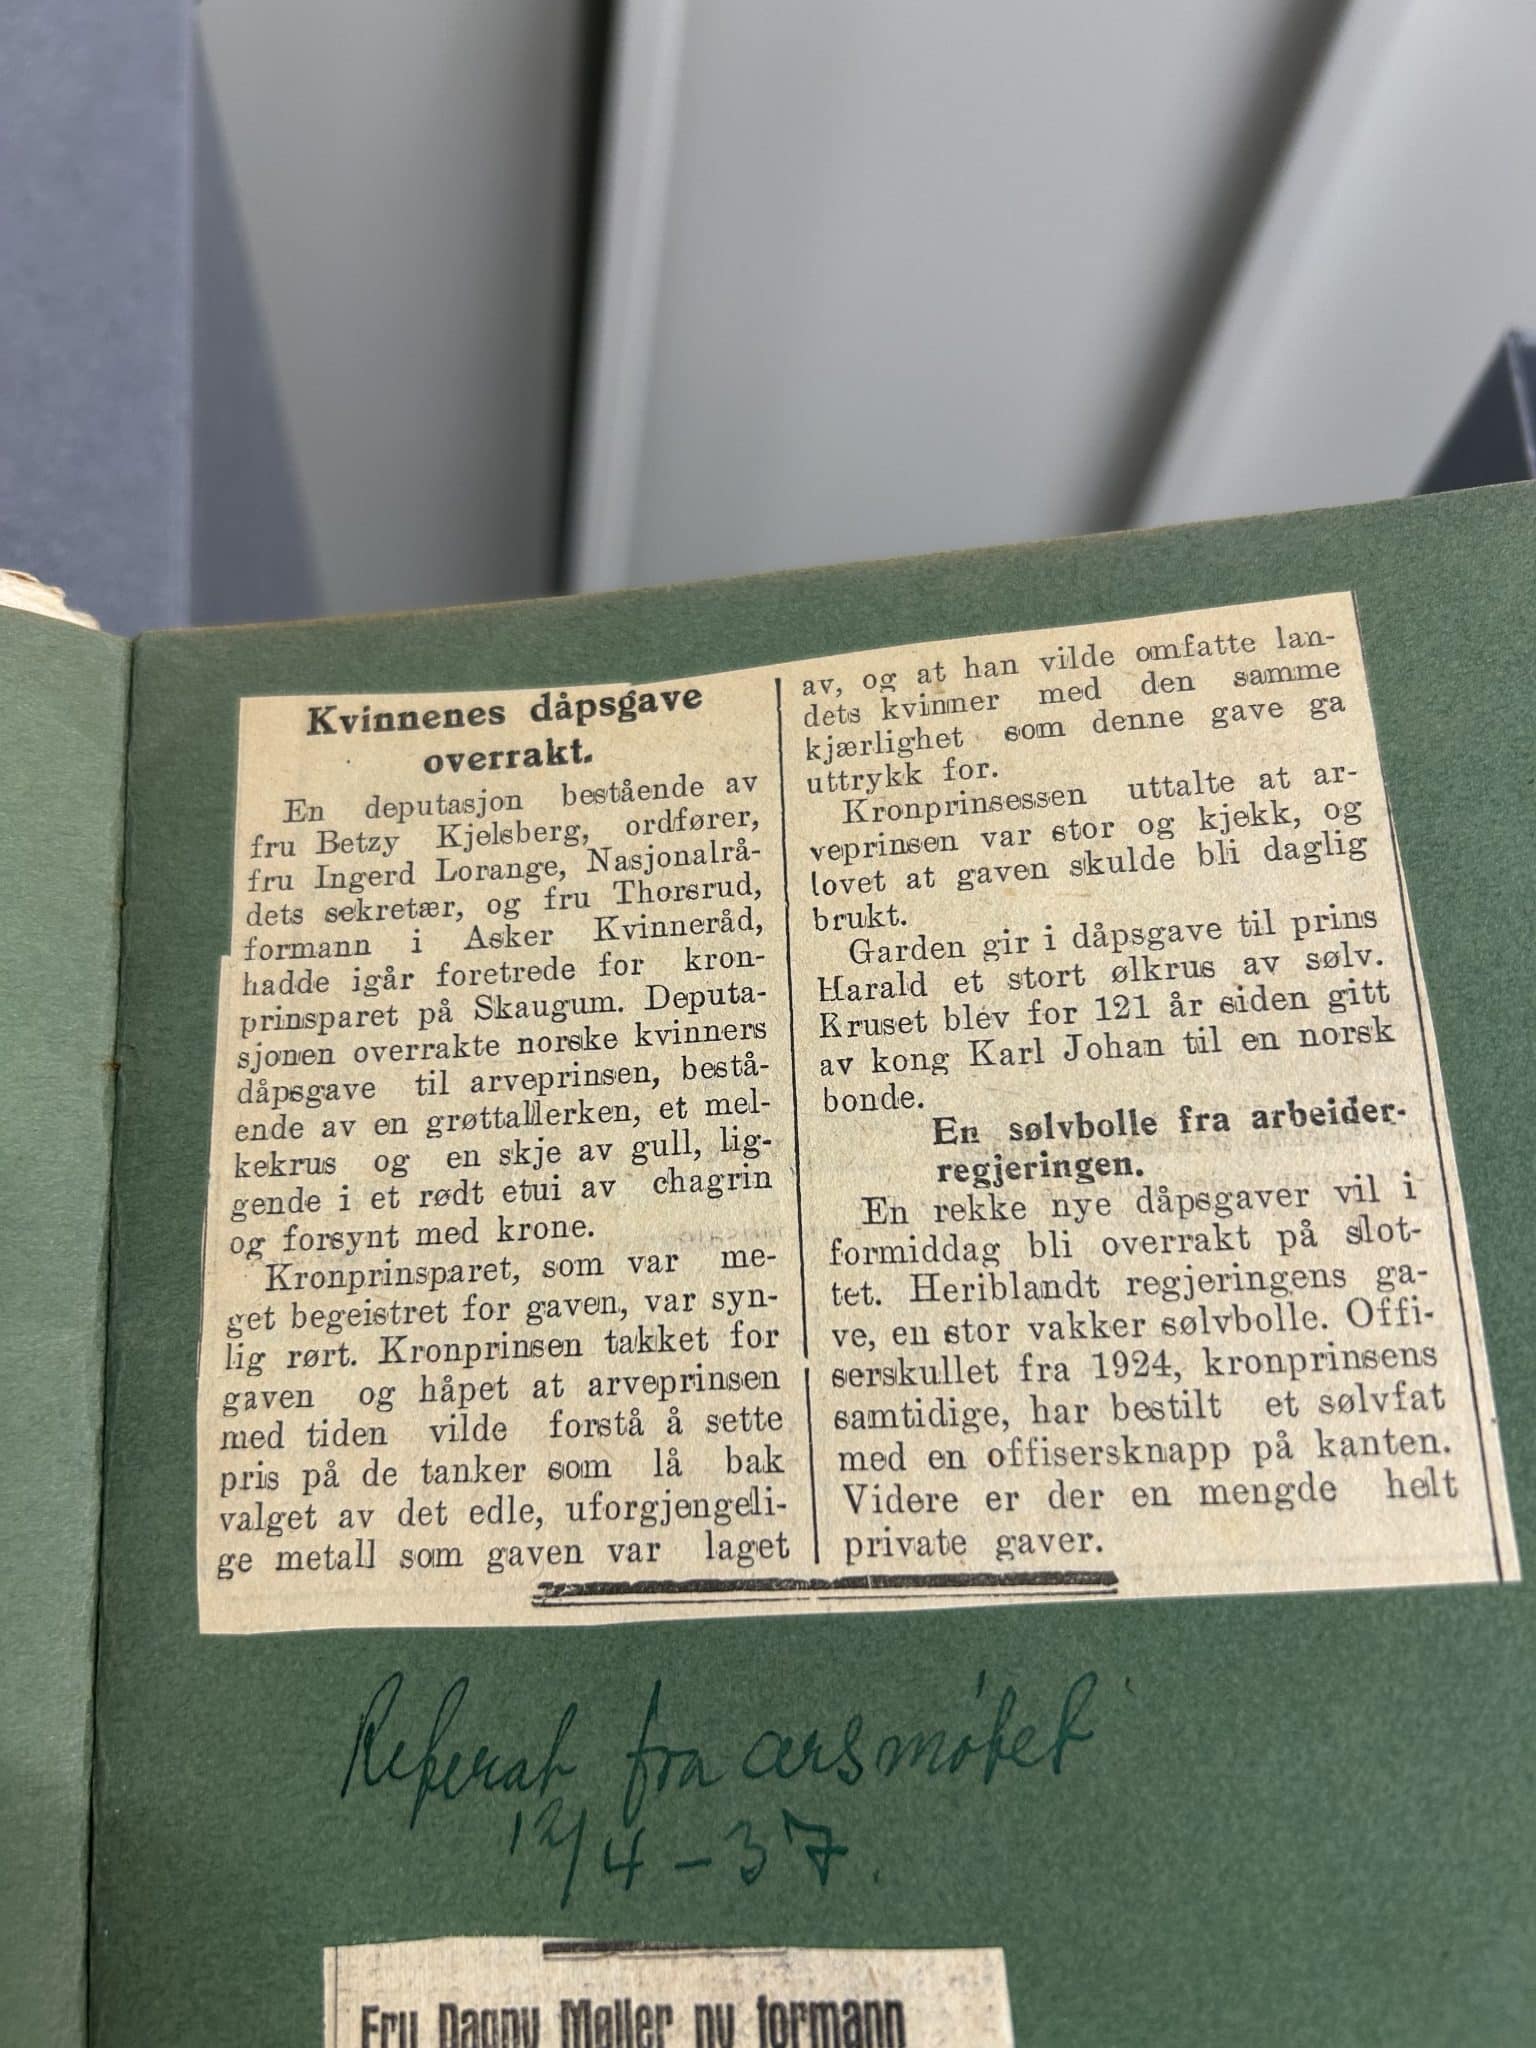 Kvinnenes dåpsgave
overrakt.
En deputasjon bestående av
fru Betzy Kjelsberg, ordfører,
fru Ingerd Lorange, Nasjonalrå-
dets sekretær, og fru Thorsrud,
formann i Asker Kvinneråd,
hadde igår foretrede for kron-
prinsparet på Skaugum. Deputa-
sjonen overrakte norske kvinners
dåpsgave til arveprinsen, bestå-
ende av en grøttallerken, et mel-
kekrus og en skje av gull, lig-
gende i et rødt etui av chagrin
og forsynt med krone.
Kronprinsparet, som var me-
get begeistret for gaven, var syn-
lig rørt. Kronprinsen takket for
gaven og håpet at arveprinsen
med tiden vilde forstå å sette
pris på de tanker som lå bak
valget av det edle, uforgjengeli-
ge metall som gaven var laget
av, og at han vilde omfatte lan-
dets kvinner med den samme
kjærlighet som denne gave ga
uttrykk for.
Kronprinsessen uttalte at ar-
veprinsen var stor og kjekk, og
lovet at gaven skulde bli daglig
brukt.
Garden gir i dåpsgave til prins
Harald et stort ølkrus av sølv.
Kruset blev for 121 år siden gitt
av kong Karl Johan til en norsk
bonde.
En sølvbolle fra arbeider-
regjeringen.
En rekke nye dåpsgaver vil i
formiddag bli overrakt på slot-
tet. Heriblandt regjeringens ga-
ve, en stor vakker sølvbolle. Offi-
serskullet fra 1924, kronprinsens
samtidige, har bestilt et sølvfat
med en offisersknapp på kanten.
Videre er der en mengde helt
private gaver.
Referat fra årsmøtet
12/4-37.
Fru Dagny Møller ny formann